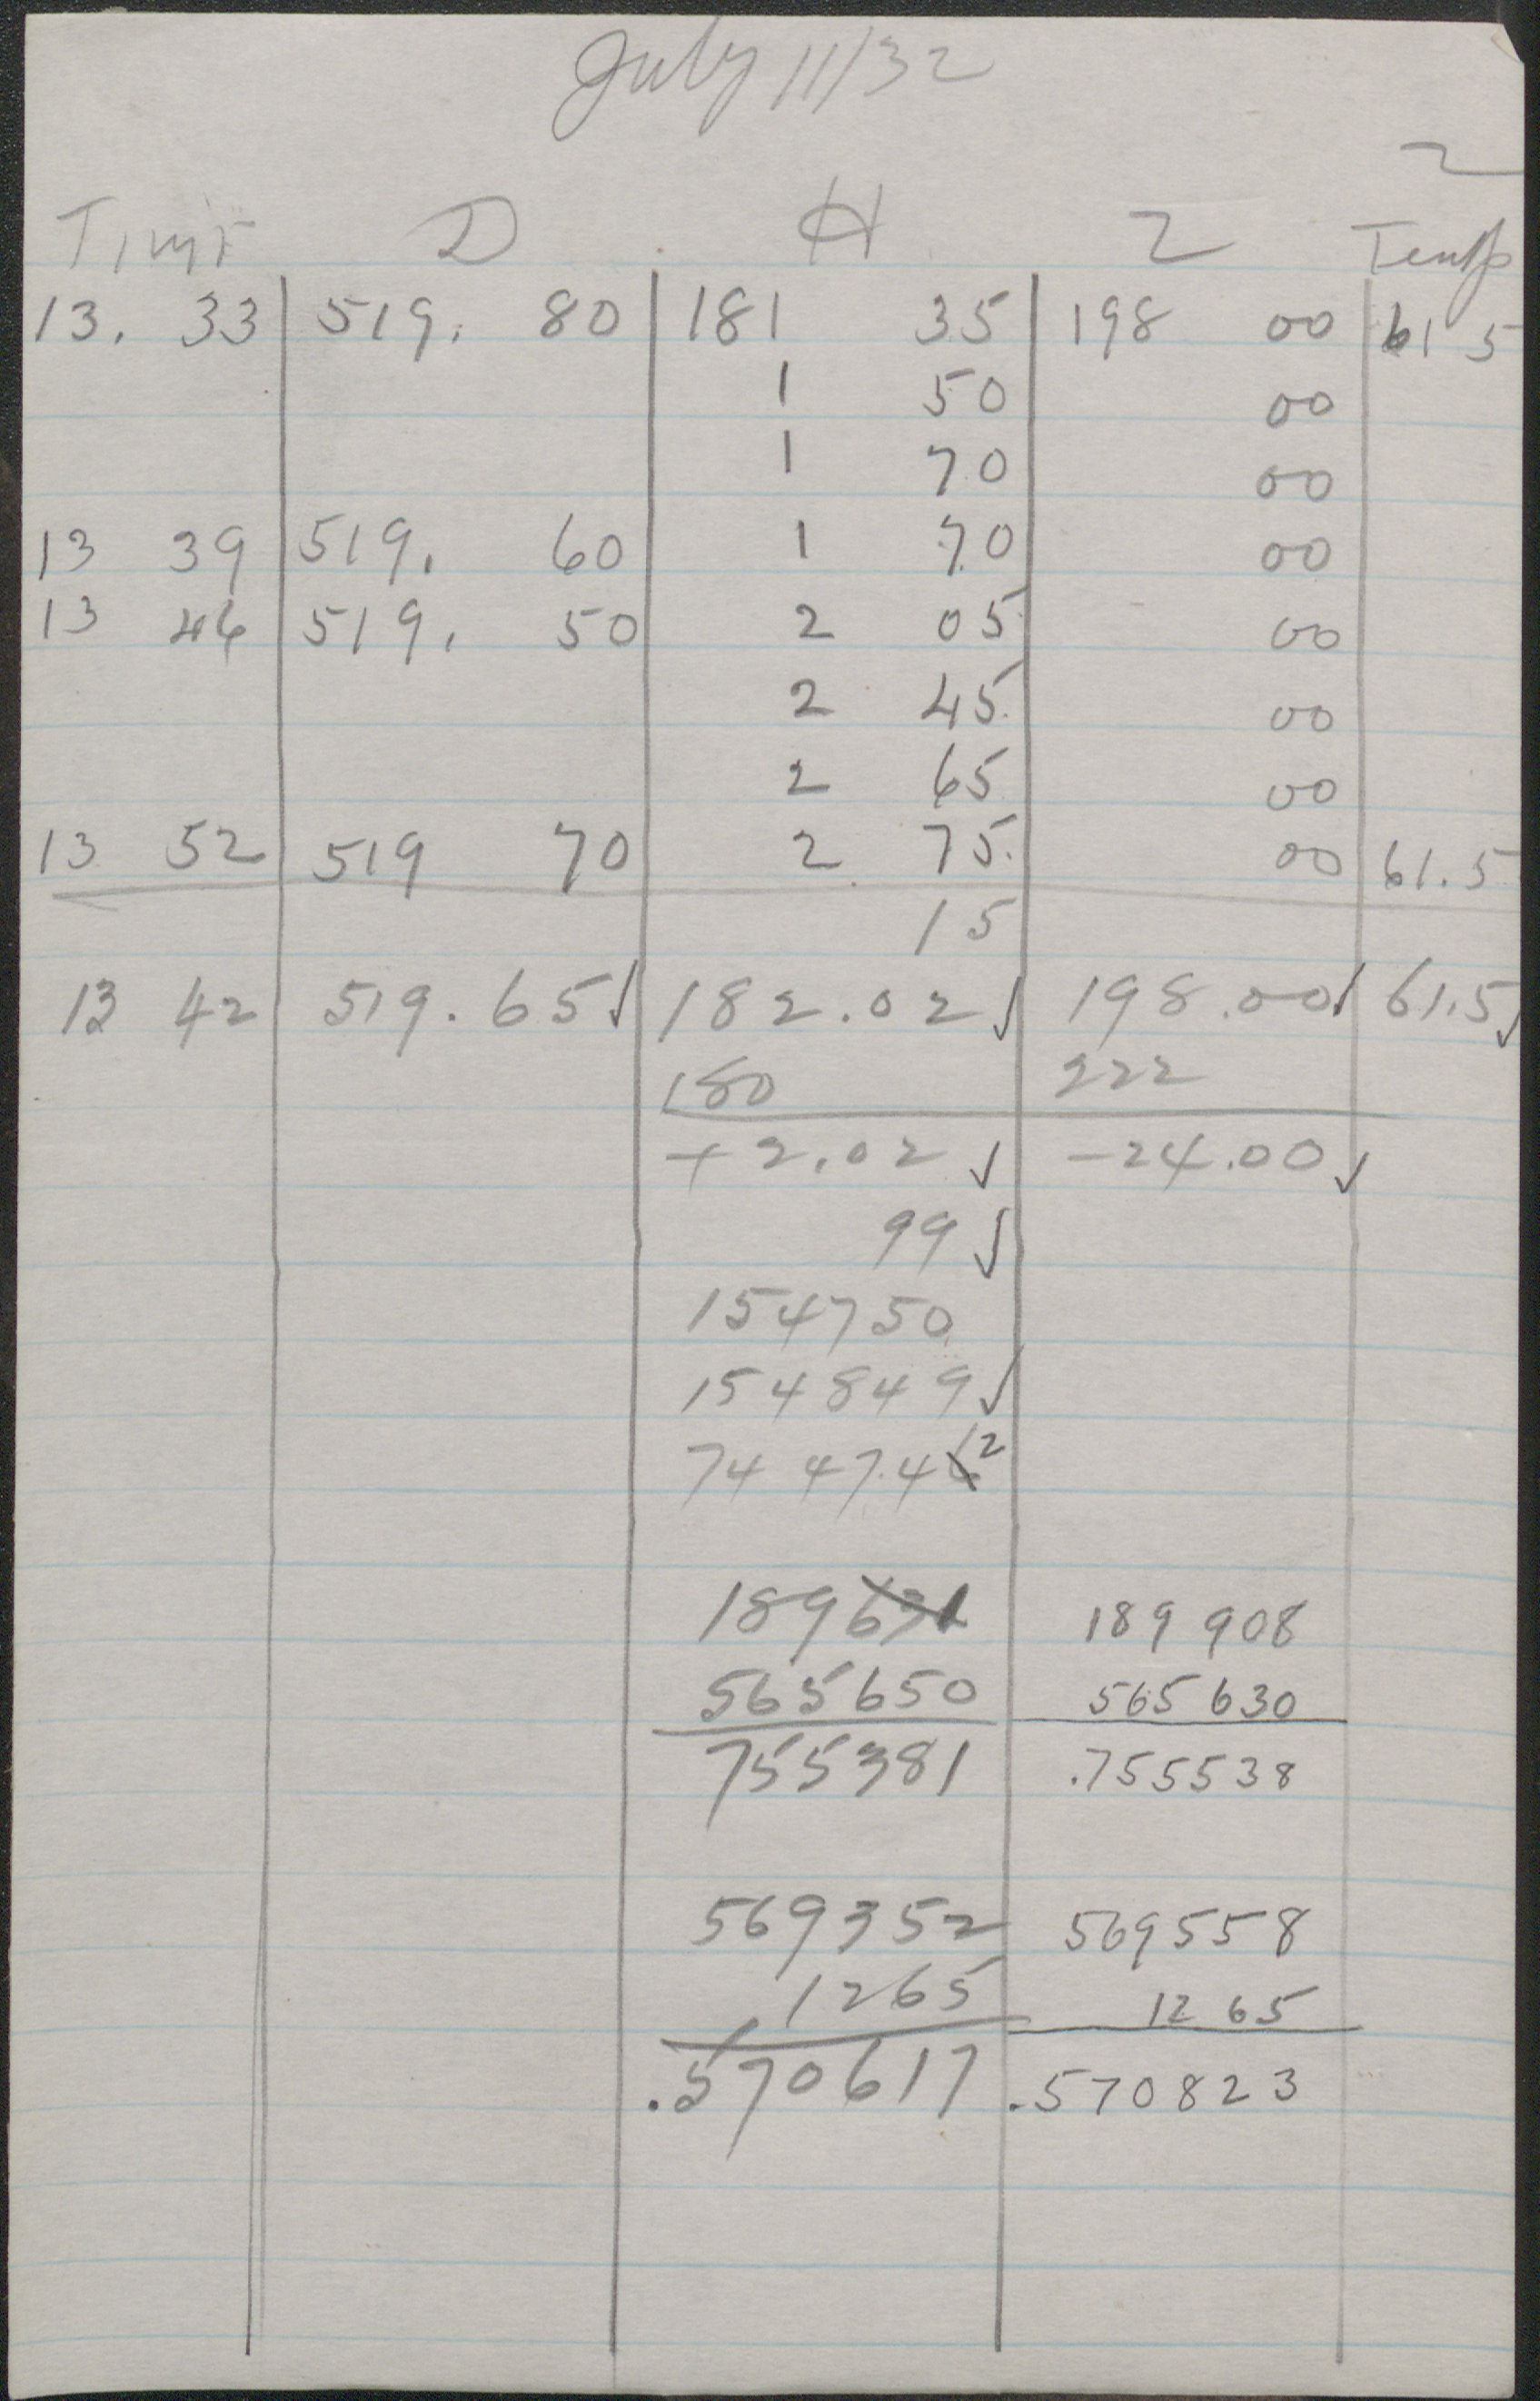 July 11/32
Z
Time D H Z Temp
13. 33 519. 80 181 35 198 00 61 5
1 50 00
1 70 00
13 39 519. 60 1 70 00
13 46 519. 50 2 05 00
2 45 00
2 65 00
13 52 519 70 2 75 00 61.5
15
13 42 519.65✓ 182.02✓ 198.00✓ 61.5✓
180 222
+2.02✓ -24.00✓
99✓
154750
154849✓
74 47.4 12
189 189 908
565650 565 630
755381 .755538
569352 569558
1265 1265
.570617 .570823